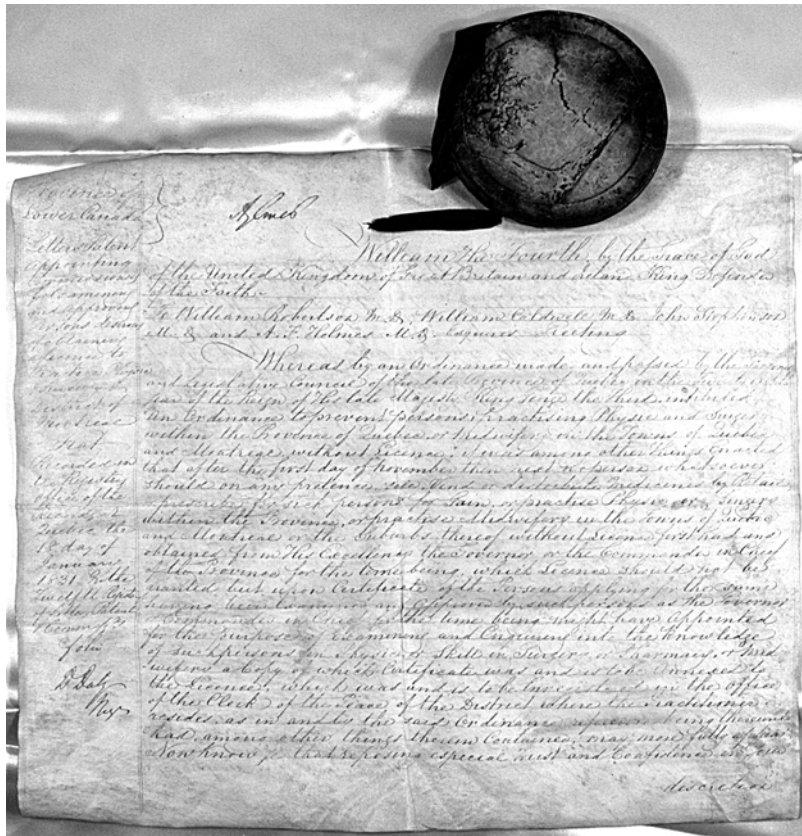 Province of
Lower Canada
Letters Patent
Appointing
Commissioners
for Examining
and approving
Persons
obtaining
Licence to
District of
Montreal
Fiat
Recorded in
the Registry
office of the
Records at
Quebec the
18 day of
January
1831 in the
Letters Patent
folio
D Daly
Aylmer
William the Fourth, by the Grace of God
of the United Kingdom of Great Britain and Ireland King Defender
of the Faith.
To William Robertson M.D. William Caldwell M.D. John Stephenson
M.D. and A. F. Holmes M.D. Esquires Greeting
Whereas by an Ordinance made and passed by the Governor
and Legislative Council of the late Province of Quebec in the
year of the Reign of His late Majesty King George the Third intituled
"An Ordinance to prevent persons practising Physic and Surgery
within the Province of Quebec, or Midwifery in the Towns of Quebec
and Montreal without Licence" It was among other things enacted
that after the first day of November then next no person whatsoever
should on any pretence sell, vend or distribute Medicines by Retail
or prescribe for sick persons for Gain, or practice Physic or Surgery
within the Province, or practise Midwifery in the Towns of Quebec
and Montreal or the Suburbs thereof without Licence first had and
obtained from His Excellency the Governor or the Commander in Chief
of the Province for the time being, which Licence should not be
granted but upon Certificate of the Persons applying for the same
having been examined and approved by such persons as the Governor
or Commander in Chief for the time being might have appointed
for the purpose of Examining and Enquiring into the knowledge
of such persons in Physic or Skill in Surgery or Pharmacy, or Mid
wifery a Copy of which Certificate was and is to be annexed to
the Licence, which was and is to be in the office
of the Clerk of the Peace of the District where the Practitioner
resides, as in and by the said Ordinance, reference being thereunto
had, among other things therein Contained, may more fully appear
Now know ye that reposing especial trust and Confidence in your
discretion